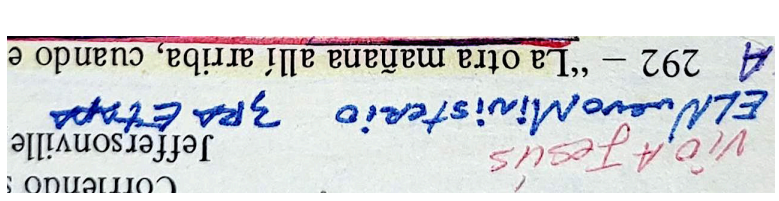 Corriendo s
VIO A Jesús Jeffersonville
EL Nuevo Ministerio 3RA Etapa
A 292 – “La otra mañana allí arriba, cuando e